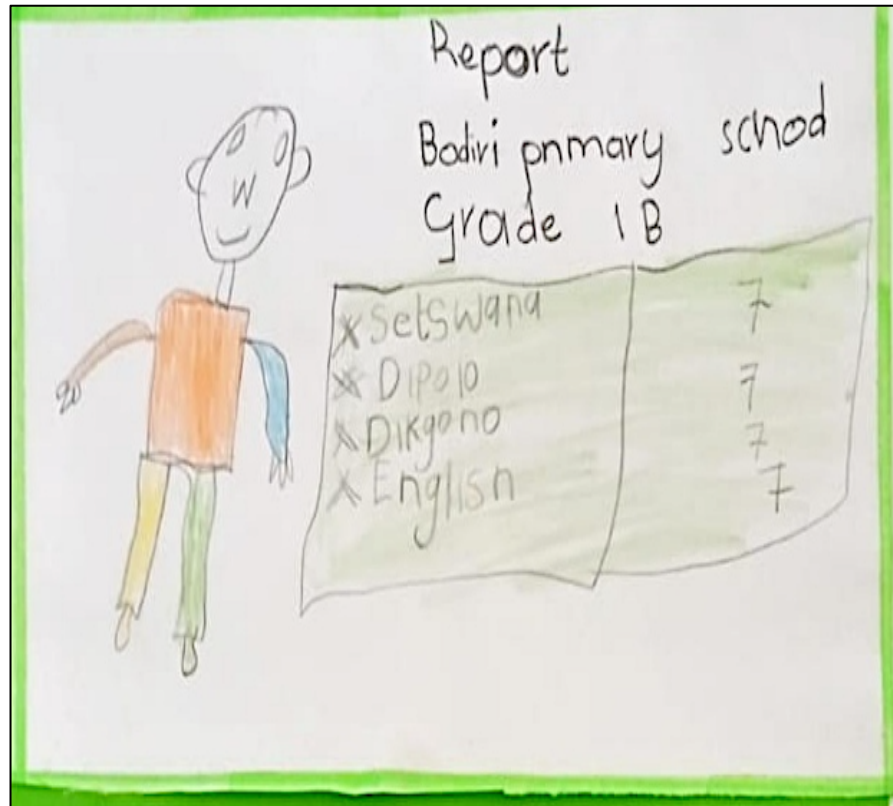 Report
Bodiri primary school
Grade 1B
x Setswana 7
x Dipolo 7
x Dikgono 7
x English 7